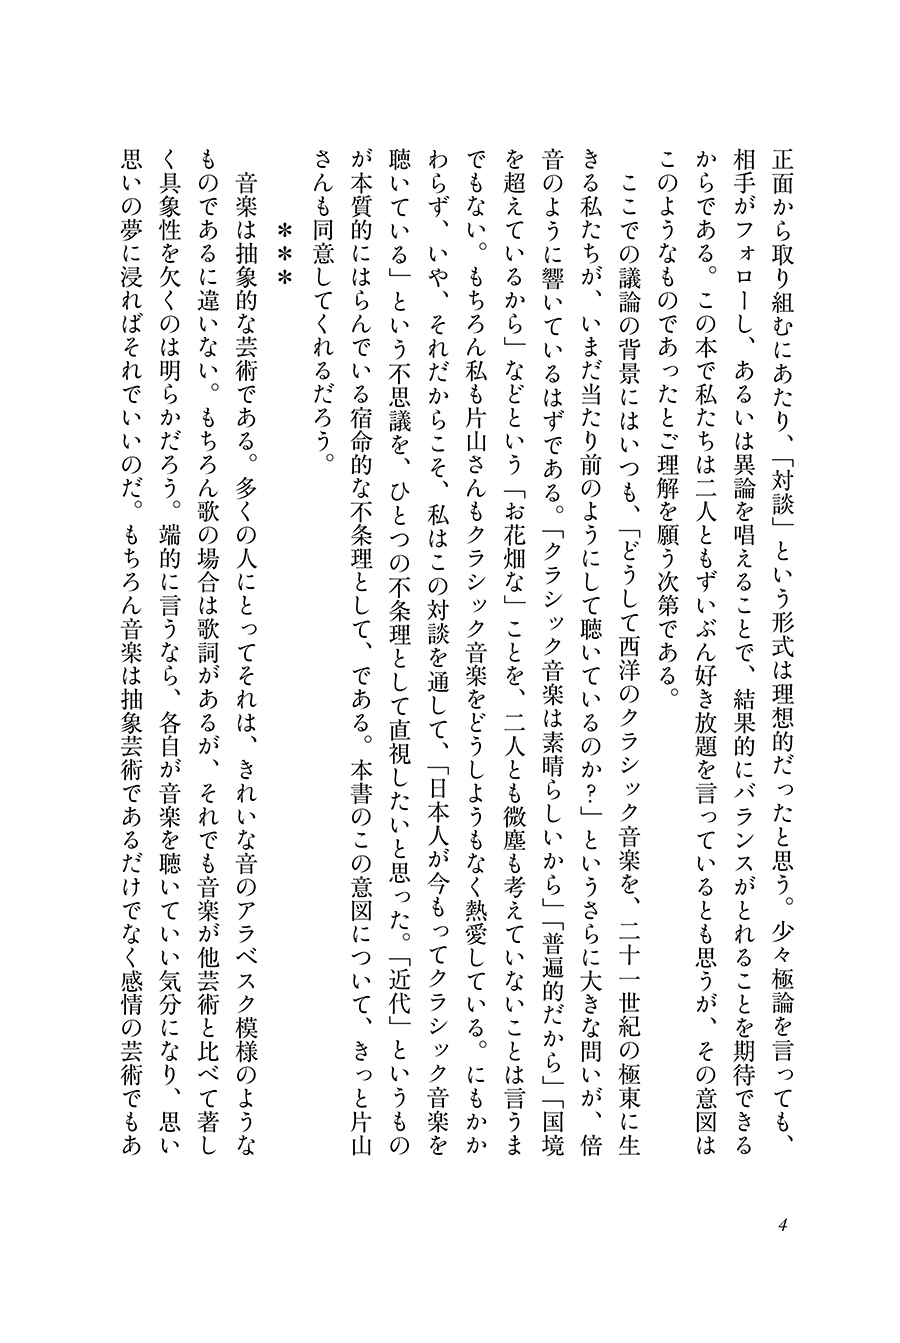 正面から取り組むにあたり、「対談」という形式は理想的だったと思う。少々極論を言っても、
相手がフォローし、あるいは異論を唱えることで、結果的にバランスがとれることを期待できる
からである。この本で私たちは二人ともずいぶん好き放題を言っているとも思うが、その意図は
このようなものであったとご理解を願う次第である。
　ここでの議論の背景にはいつも、「どうして西洋のクラシック音楽を、二十一世紀の極東に生
きる私たちが、いまだ当たり前のようにして聴いているのか？」というさらに大きな問いが、倍
音のように響いているはずである。「クラシック音楽は素晴らしいから」「普遍的だから」「国境
を超えているから」などという「お花畑な」ことを、二人とも微塵も考えていないことは言うま
でもない。もちろん私も片山さんもクラシック音楽をどうしようもなく熱愛している。にもかか
わらず、いや、それだからこそ、私はこの対談を通して、「日本人が今もってクラシック音楽を
聴いている」という不思議を、ひとつの不条理として直視したいと思った。「近代」というもの
が本質的にはらんでいる宿命的な不条理として、である。本書のこの意図について、きっと片山
さんも同意してくれるだろう。
＊＊＊
　音楽は抽象的な芸術である。多くの人にとってそれは、きれいな音のアラベスク模様のような
ものであるに違いない。もちろん歌の場合は歌詞があるが、それでも音楽が他芸術と比べて著し
く具象性を欠くのは明らかだろう。端的に言うなら、各自が音楽を聴いていい気分になり、思い
思いの夢に浸ればそれでいいのだ。もちろん音楽は抽象芸術であるだけでなく感情の芸術でもあ
4